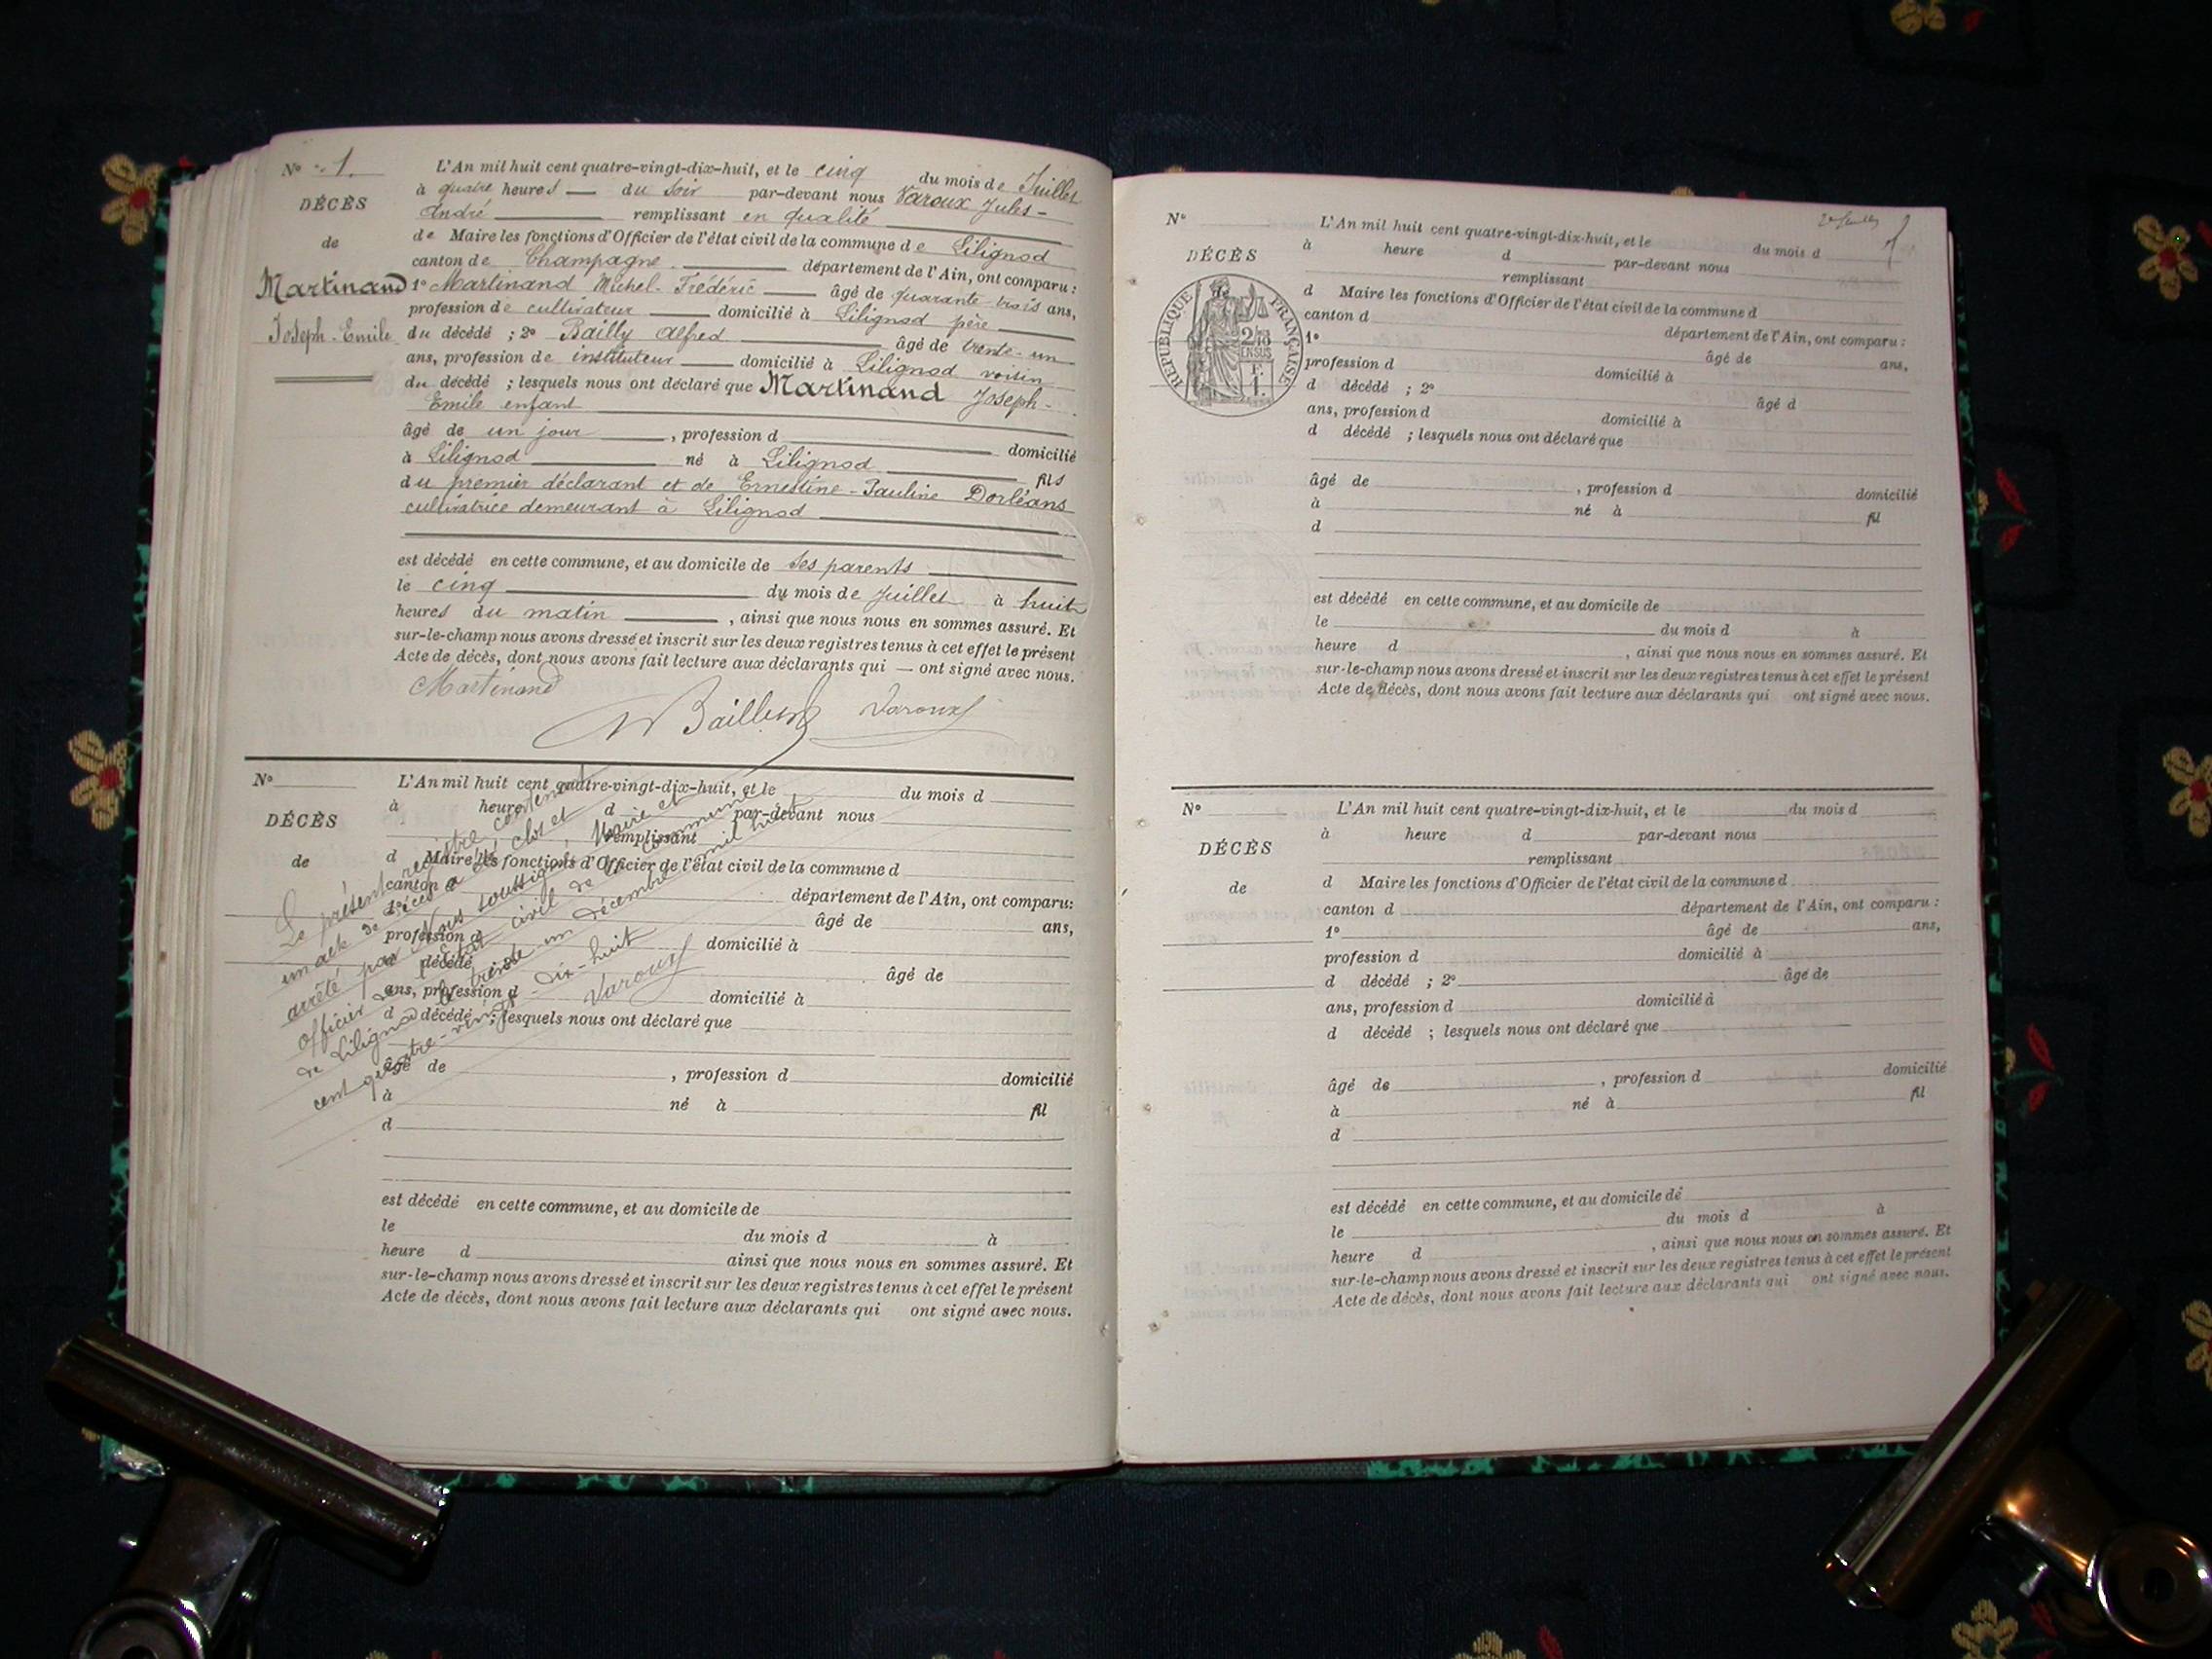 N° 1.
L'An mil huit cent quatre-vingt-dix-huit, et le cinq du mois de Juillet
DÉCÈS
à quatre heures du soir par-devant nous Varoux Jules-
André remplissant en qualité
de
de Maire les fonctions d'Officier de l'état civil de la commune de Lilignod
canton de Champagne département de l'Ain, ont comparu :
Martinand
1° Martinand Michel-Frédéric âgé de quarante-trois ans,
profession de cultivateur domicilié à Lilignod père
Joseph-Emile
du décédé ; 2° Bailly Alfred âgé de trente-un
ans, profession de instituteur domicilié à Lilignod voisin
du décédé ; lesquels nous ont déclaré que Martinand Joseph-
Emile enfant
âgé de un jour , profession d domicilié
à Lilignod né à Lilignod fils
du premier déclarant et de Ernestine-Pauline Dorléans
cultivatrice demeurant à Lilignod
est décédé en cette commune, et au domicile de ses parents
le cinq du mois de Juillet à huit
heures du matin , ainsi que nous nous en sommes assuré. Et
sur-le-champ nous avons dressé et inscrit sur les deux registres tenus à cet effet le présent
Acte de décès, dont nous avons fait lecture aux déclarants qui — ont signé avec nous.
Martinand
Bailly Varoux
N°
L'An mil huit cent quatre-vingt-dix-huit, et le du mois d
DÉCÈS
à heure d par-devant nous
remplissant
de
d Maire les fonctions d'Officier de l'état civil de la commune d
canton d
département de l'Ain, ont comparu:
1° âgé de ans,
profession d domicilié à
d décédé ; 2° âgé de
ans, profession d domicilié à
d décédé ; lesquels nous ont déclaré que
âgé de , profession d domicilié
à né à fil
d
est décédé en cette commune, et au domicile de
le du mois d à
heure d ainsi que nous nous en sommes assuré. Et
sur-le-champ nous avons dressé et inscrit sur les deux registres tenus à cet effet le présent
Acte de décès, dont nous avons fait lecture aux déclarants qui ont signé avec nous.
Le présent registre contenant
un acte de décès a été clos et
arrêté par Nous soussigné, Maire et
officier de l'état civil de la commune
de Lilignod le trente-un décembre mil huit
cent quatre-vingt-dix-huit
Varoux
N°
L'An mil huit cent quatre-vingt-dix-huit, et le du mois d
DÉCÈS
à heure d par-devant nous
remplissant
de
d Maire les fonctions d'Officier de l'état civil de la commune d
canton d département de l'Ain, ont comparu :
RÉPUBLIQUE FRANÇAISE
2/10
EN SUS
F.
1.
1° âgé de ans,
profession d domicilié à
d décédé ; 2° âgé d
ans, profession d domicilié à
d décédé ; lesquels nous ont déclaré que
âgé de , profession d domicilié
à né à fil
d
est décédé en cette commune, et au domicile de
le du mois d à
heure d , ainsi que nous nous en sommes assuré. Et
sur-le-champ nous avons dressé et inscrit sur les deux registres tenus à cet effet le présent
Acte de décès, dont nous avons fait lecture aux déclarants qui ont signé avec nous.
N°
L'An mil huit cent quatre-vingt-dix-huit, et le du mois d
DÉCÈS
à heure d par-devant nous
remplissant
de
d Maire les fonctions d'Officier de l'état civil de la commune d
canton d département de l'Ain, ont comparu :
1° âgé de ans,
profession d domicilié à
d décédé ; 2° âgé de
ans, profession d domicilié à
d décédé ; lesquels nous ont déclaré que
âgé de , profession d domicilié
à né à fil
d
est décédé en cette commune, et au domicile de
le du mois d à
heure d , ainsi que nous nous en sommes assuré. Et
sur-le-champ nous avons dressé et inscrit sur les deux registres tenus à cet effet le présent
Acte de décès, dont nous avons fait lecture aux déclarants qui ont signé avec nous.